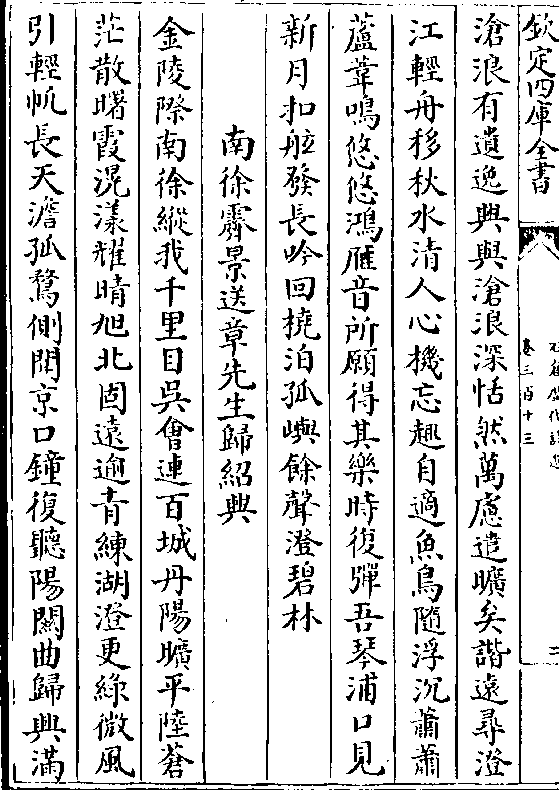 欽定四庫全書
卷三百十三
二
滄浪有遺逸興與滄浪深恬然萬慮遣曠矣諧遠尋澄
江輕舟移秋水清人心機忘趣自適魚鳥隨浮沉蕭蕭
蘆葦鳴悠悠鴻雁音所願得其樂時復彈吾琴浦口見
新月扣舷發長吟回橈泊孤嶼餘聲澄碧林
南徐霽景送章先生歸紹興
金陵際南徐縱我千里目吳會連百城丹陽曠平陸蒼
茫散曙霞滉漾耀晴旭北固遠逾青練湖澄更綠微風
引輕帆長天澹孤鶩側聞京口鐘復聽陽關曲歸興滿